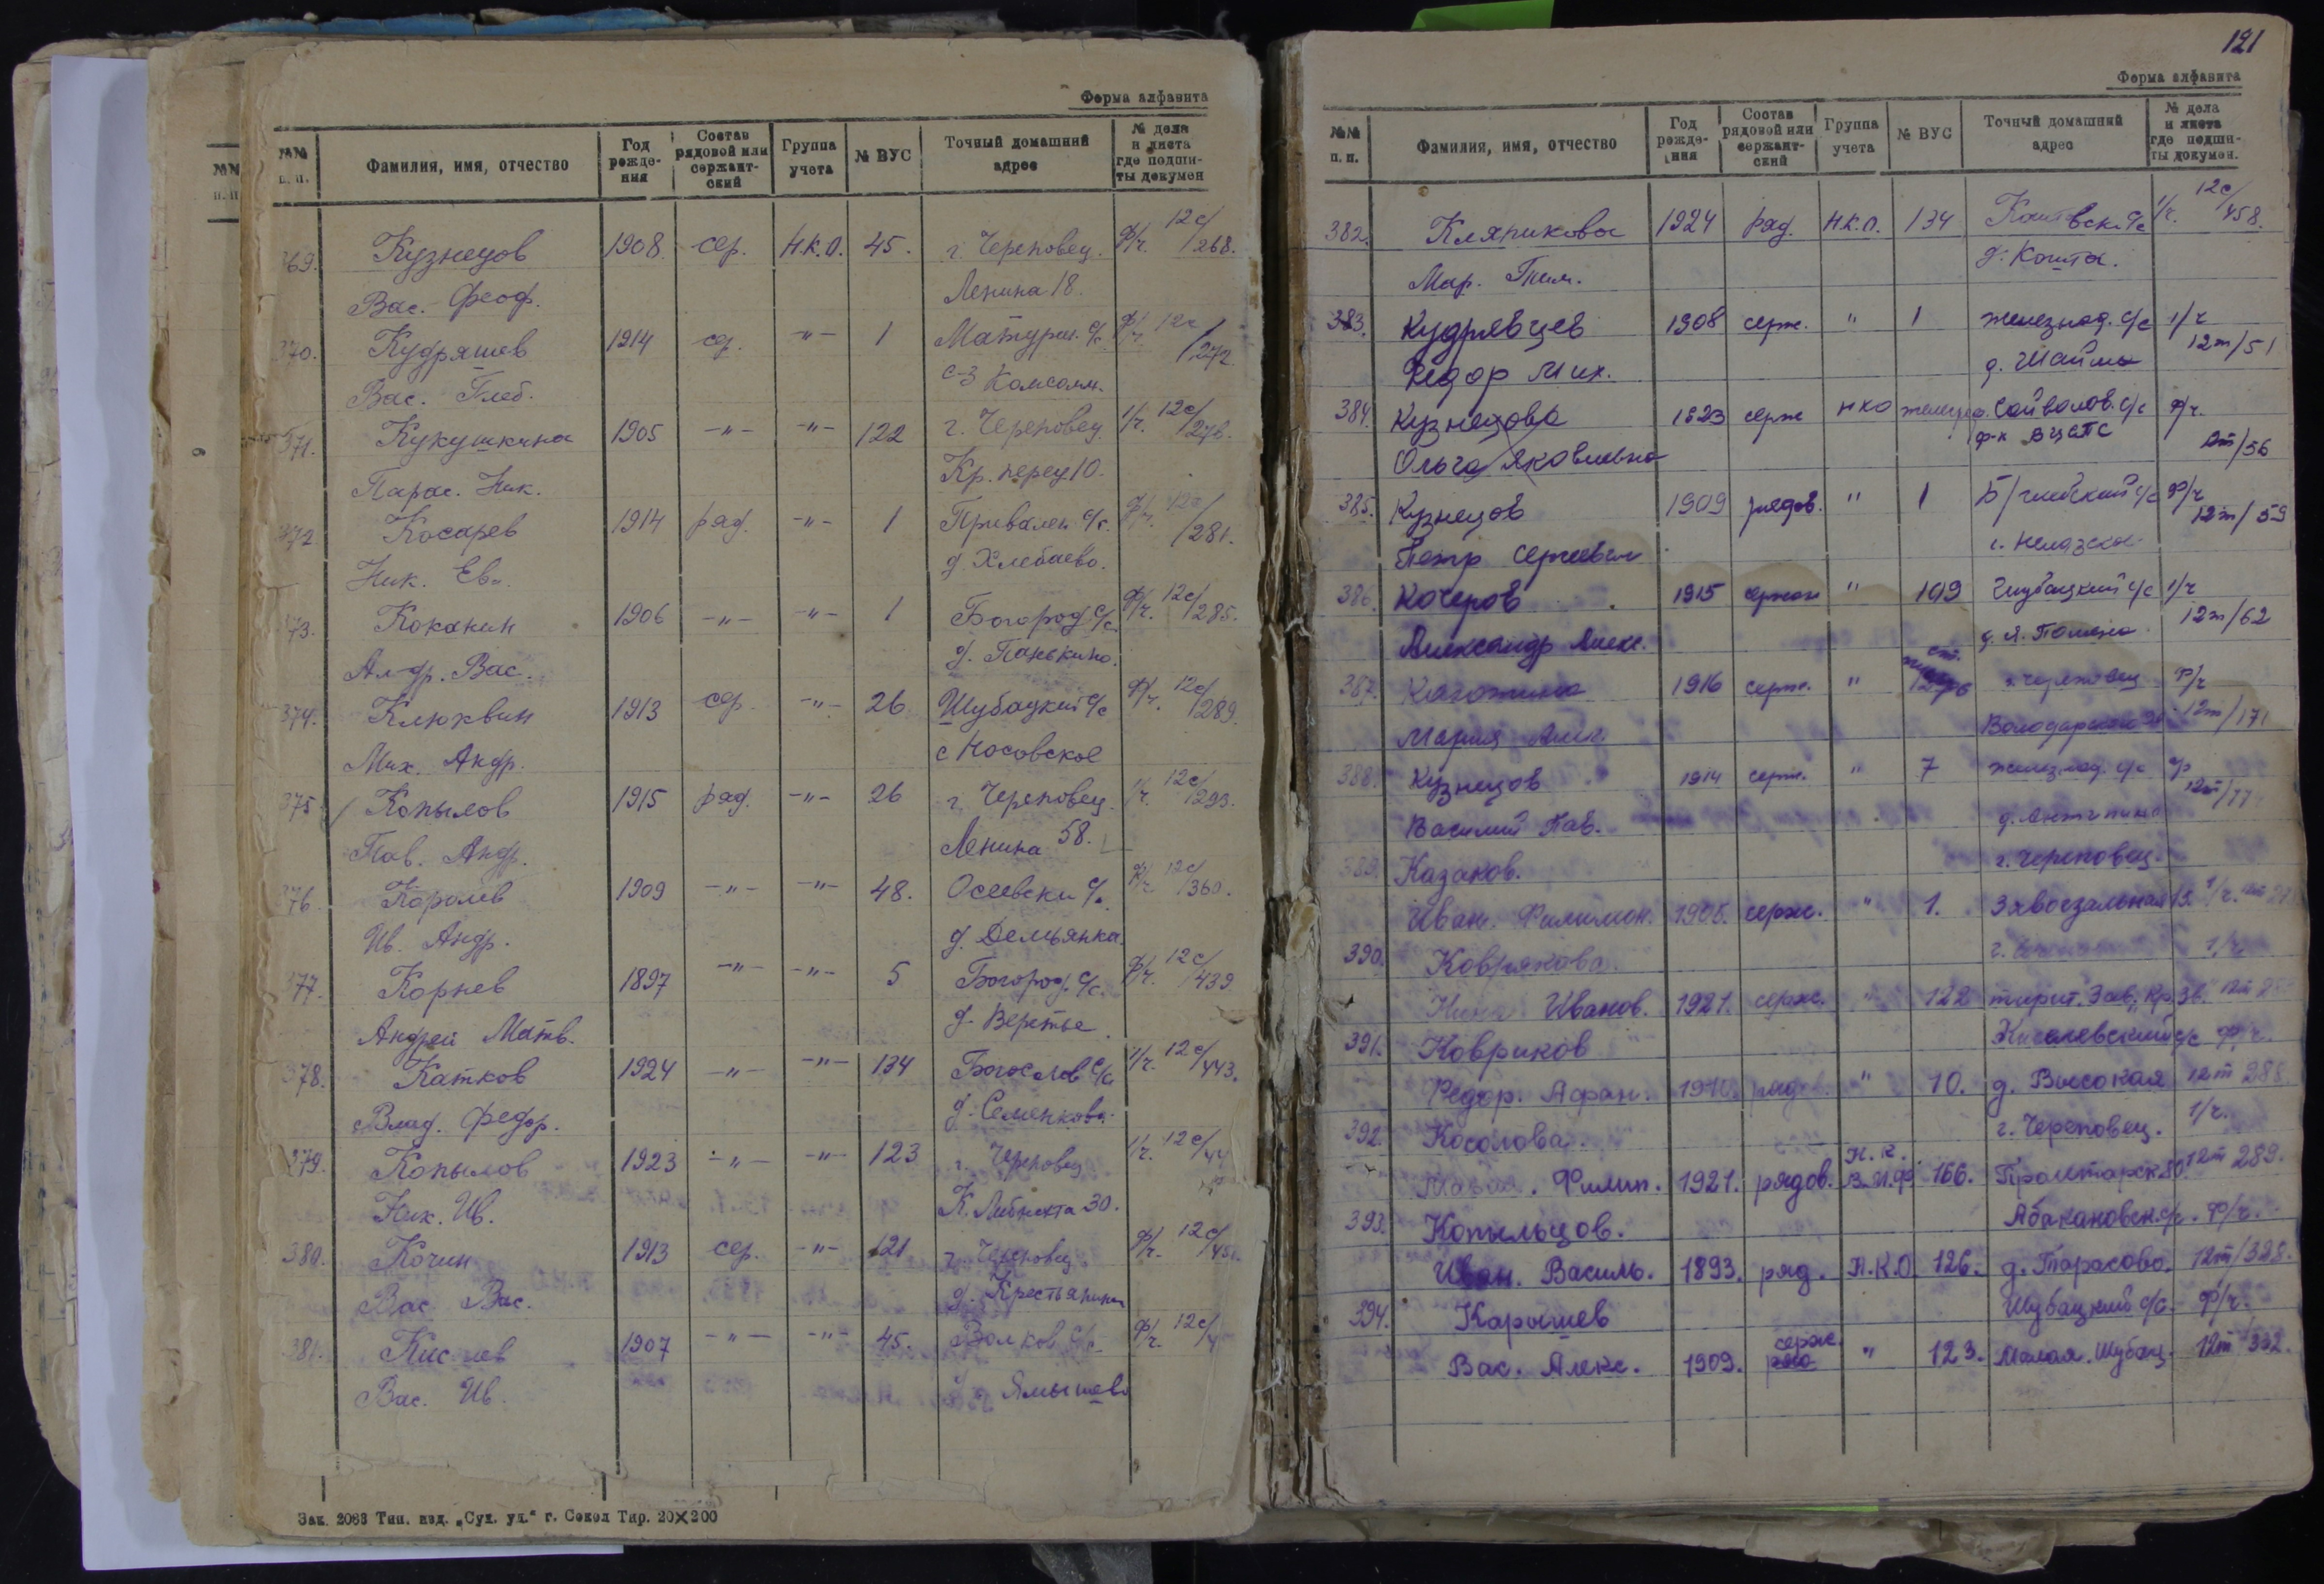 Форма алфавита
№№ п. п. Фамилия, имя, отчество Год рожде- ния Состав рядовой или сержант- ский Группа учета № ВУС Точный домашний адрес № дела и листа где подши- ты докумен
369. Кузнецов 1908 сер. Н.К.О. 45. г. Череповец. ф/ч. 12с/268.
Вас. Феоф. Ленина 18.
370. Кудряшев 1914 сер. -"- 1 Матурин. с/с ф/ч. 12с/272
Вас. Глеб. с-з Комсом.
371. Кукушкина 1905 -"- -"- 122 г. Череповец. 1/ч. 12с/276.
Парас. Ник. Кр. переу 10.
372 Косарев 1914 ряд. -"- 1 Привален с/с. ф/ч. 12с/281.
Ник. Ев. д. Хлебаево.
373. Коканин 1906 -"- -"- 1 Богород с/с. ф/ч. 12с/285.
Ал-др. Вас. д. Панькино.
374. Клюквин 1913 сер -"- 26 Шубацкий с/с ф/ч. 12с/289.
Мих. Андр. с Носовское
375 Копылов 1915 ряд. -"- 26 г. Череповец. 1/ч. 12с/293.
Пав. Андр. Ленина 58.
376. Королев 1909 -"- -"- 48. ф/ч 12с/360.
Ив. Андр. д. Демьянка.
377. Корнев 1897 -"- -"- 5 Богород. с/с. ф/ч. 12с/439
Андрей Матв. д. Веретье.
378. Катков 1924 -"- -"- 134 Богослов с/с 1/ч. 12с/443.
Влад. Федор. д. Семенково.
379. Копылов 1923 -"- -"- 123 г. Череповец 1/ч. 12с/44
Ник. Ив. К. Либкнехта 30.
380. Кочин 1913 сер. -"- 121 г. Череповец ф/ч. 12с/451.
Вас Вас. д.
381. 1907 -"- -"- 45. Волков с/с ф/ч. 12с/
Вас. Ив. Ямышево
Зак. 2083 Тип. изд. „Сух. уд.“ г. Сокол Тир. 20×200
121
Форма алфавита
№№ п. п. Фамилия, имя, отчество Год рожде- ния Состав рядовой или сержант- ский Группа учета № ВУС Точный домашний адрес № дела и листа где подши- ты докумен.
382. Кляпикова 1924 ряд. Н.К.О. 134 с/с 1/ч. 12с/458.
Мар. Тим. д. Кошта.
383. Кудрявцев 1908 серж. " 1 железнод. с/с 1/ч 12т/51
Федор Мих. д. Шайма
384. Кузнецова 1923 серж НКО с/с ф/ч. 12т/56
Ольга Яковлевна ф-к ВЦСПС
385. Кузнецов 1909 рядов. " 1 с/с ф/ч 12т/59
Петр Сергеевич с. Нелазское
386. Кочеров 1915 " 109 Шубацкий с/с 1/ч 12т/62
Александр Алекс.
387. 1916 серж. " г. Череповец ф/ч
Мария Володарского 12т/171
388. Кузнецов 1914 серж. " 7 железнод. с/с ф
Василий Пав. д. 12т/77
389. Казаков. г. Череповец
Иван. Филимон. 1905. серж. " 1. Завокзальная 15. 1/ч.
390. Коврякова. г. 1/ч.
Нина Иванов. 1921. серж. " 122
391. Ковриков с/с ф/ч.
Федор. Афан. " 10. д. Высокая 12т 288
392. Косолова. г. Череповец. 1/ч.
Филип. 1921. рядов. Н.К. В.М.Ф 166. Пролетарск. 80. 12т 289.
393. Копыльцов. Абакановск. с/с. ф/ч.
Иван. Василь. 1893. ряд. Н.К.О. 126. д. Тарасово. 12т/328.
394. Карышев Шубацкий с/с. ф/ч.
Вас. Алекс. 1909. серж. ряд " 123. Малая. Шубац. 12т 332.